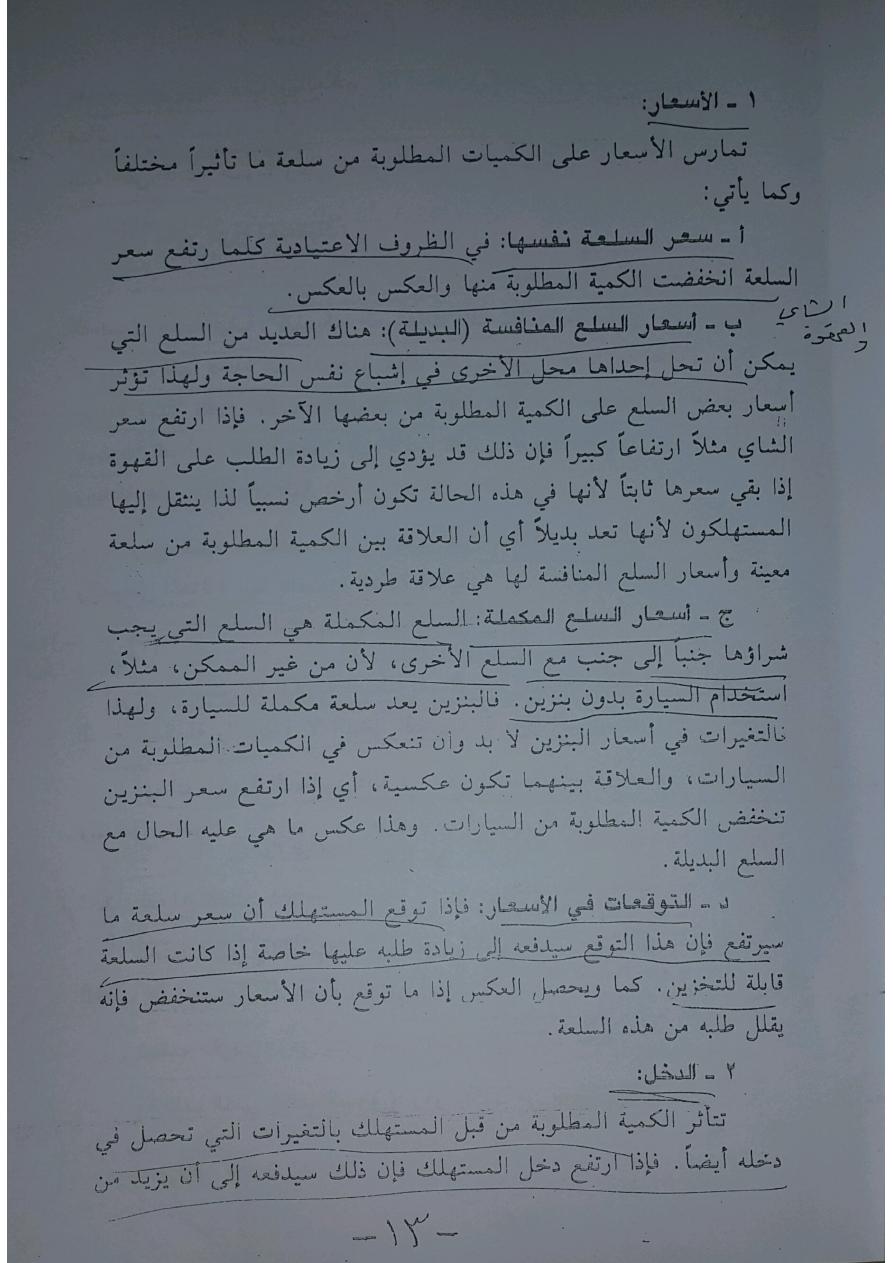 ١ ـ الأسعار:
تمارس الأسعار على الكميات المطلوبة من سلعة ما تأثيراً مختلفاً
وكما يأتي:
أ ـ سعر السلعة نفسها: في الظروف الاعتيادية كلما رتفع سعر
السلعة انخفضت الكمية المطلوبة منها والعكس بالعكس.
الشاي
والقهوة
ب ـ أسعار السلع المنافسة (البديلة): هناك العديد من السلع التي
يمكن أن تحل إحداها محل الأخرى في إشباع نفس الحاجة ولهذا تؤثر
أسعار بعض السلع على الكمية المطلوبة من بعضها الآخر. فإذا ارتفع سعر
الشاي مثلاً ارتفاعاً كبيراً فإن ذلك قد يؤدي إلى زيادة الطلب على القهوة
إذا بقي سعرها ثابتاً لأنها في هذه الحالة تكون أرخص نسبياً لذا ينتقل إليها
المستهلكون لأنها تعد بديلاً أي أن العلاقة بين الكمية المطلوبة من سلعة
معينة وأسعار السلع المنافسة لها هي علاقة طردية.
ج ـ أسعار السلع المكملة: السلع المكملة هي السلع التي يجب
شراؤها جنباً إلى جنب مع السلع الأخرى، لأن من غير الممكن، مثلاً،
استخدام السيارة بدون بنزين. فالبنزين يعد سلعة مكملة للسيارة، ولهذا
فالتغيرات في أسعار البنزين لا بد وأن تنعكس في الكميات المطلوبة من
السيارات، والعلاقة بينهما تكون عكسية، أي إذا ارتفع سعر البنزين
تنخفض الكمية المطلوبة من السيارات. وهذا عكس ما هي عليه الحال مع
السلع البديلة.
د ـ التوقعات في الأسعار: فإذا توقع المستهلك أن سعر سلعة ما
سيرتفع فإن هذا التوقع سيدفعه إلى زيادة طلبه عليها خاصة إذا كانت السلعة
قابلة للتخزين. كما ويحصل العكس إذا ما توقع بأن الأسعار ستنخفض فإنه
يقلل طلبه من هذه السلعة.
٢ ـ الدخل:
تتأثر الكمية المطلوبة من قبل المستهلك بالتغيرات التي تحصل في
دخله أيضاً. فإذا ارتفع دخل المستهلك فإن ذلك سيدفعه إلى أن يزيد من
-١٣-